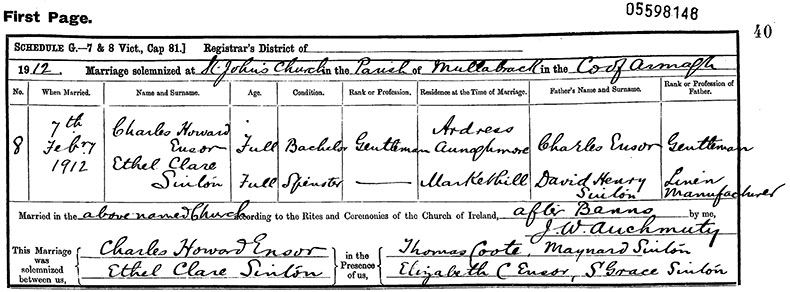 First Page.
05598148
40
SCHEDULE G.—7 & 8 Vict., Cap 81.] Registrar's District of
1912. Marriage solemnized at St. John's Church in the Parish of Mullabrack in the Co of Armagh
No. When Married. Name and Surname. Age. Condition. Rank or Profession. Residence at the Time of Marriage. Father's Name and Surname. Rank or Profession of Father.
8 7th Feb.y 1912 Charles Howard Ensor Full Bachelor Gentleman Ardress Aunaghmore Charles Ensor Gentleman
Ethel Clare Sinton Full Spinster — Markethill David Henry Sinton Linen Manufacturer
Married in the above named Church according to the Rites and Ceremonies of the Church of Ireland, after Banns by me,
J. W. Auchmuty
This Marriage was solemnized between us, Charles Howard Ensor in the Presence of us, Thomas Coote, Maynard Sinton
Ethel Clare Sinton Elizabeth C Ensor, S Grace Sinton